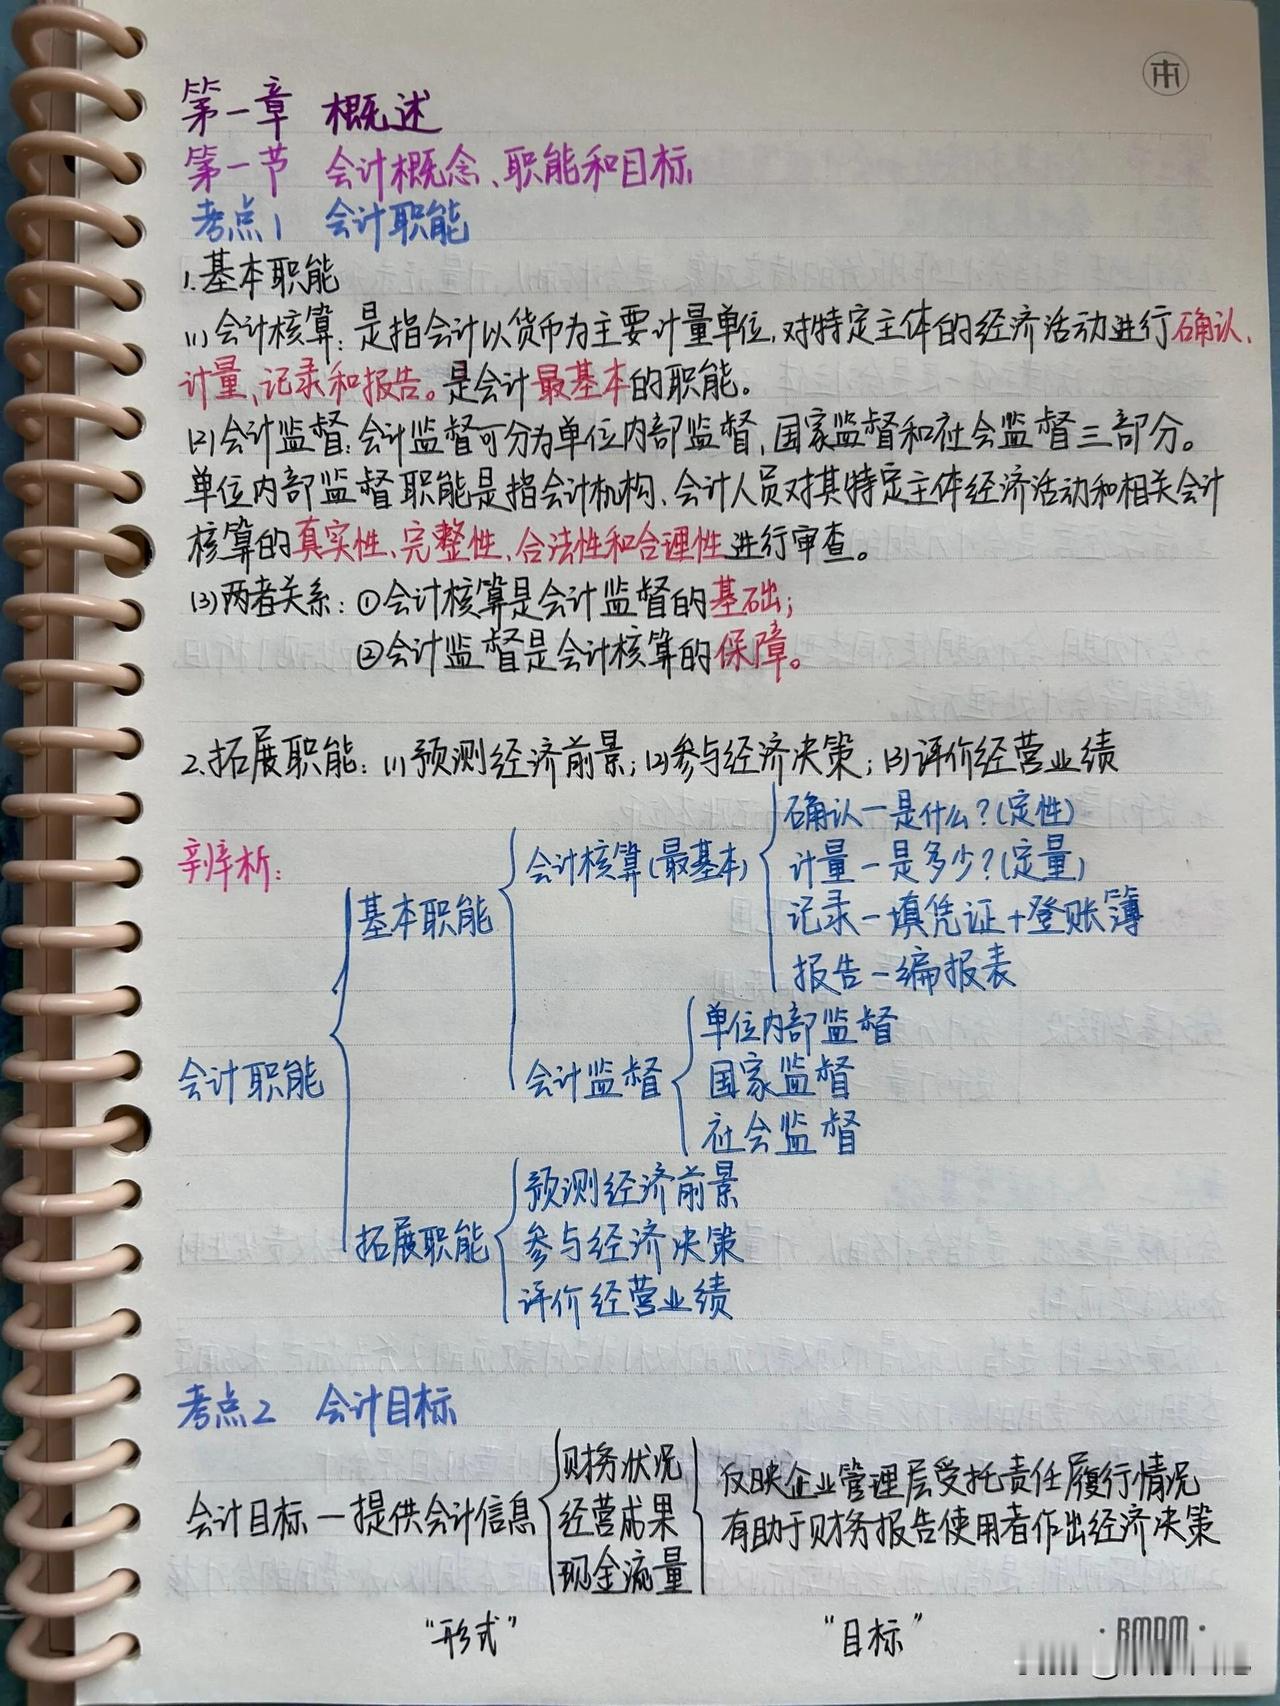 第一章 概述
第一节 会计概念、职能和目标
考点1 会计职能
1.基本职能
(1)会计核算：是指会计以货币为主要计量单位，对特定主体的经济活动进行确认、
计量、记录和报告。是会计最基本的职能。
(2)会计监督：会计监督可分为单位内部监督、国家监督和社会监督三部分。
单位内部监督职能是指会计机构、会计人员对其特定主体经济活动和相关会计
核算的真实性、完整性、合法性和合理性进行审查。
(3)两者关系：①会计核算是会计监督的基础；
②会计监督是会计核算的保障。
2.拓展职能：(1)预测经济前景；(2)参与经济决策；(3)评价经营业绩
辨析：
会计职能
基本职能
会计核算(最基本)
确认—是什么？(定性)
计量—是多少？(定量)
记录—填凭证+登账簿
报告—编报表
会计监督
单位内部监督
国家监督
社会监督
拓展职能
预测经济前景
参与经济决策
评价经营业绩
考点2 会计目标
会计目标—提供会计信息
财务状况
经营成果
现金流量
反映企业管理层受托责任履行情况
有助于财务报告使用者作出经济决策
“形式” “目标”